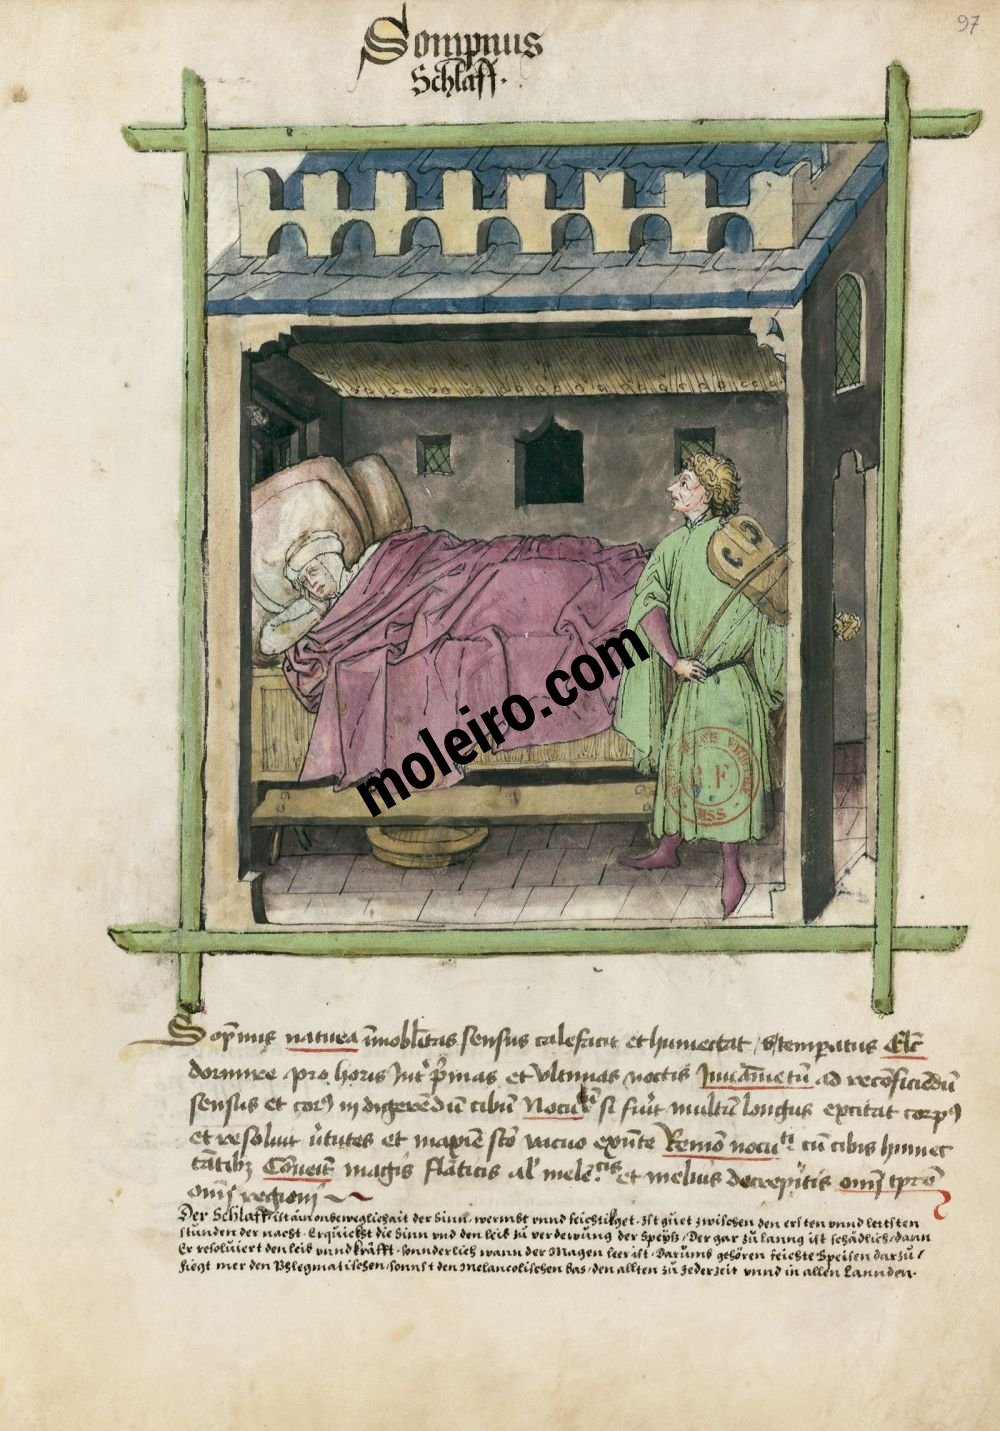 97
Sompnus
Schlaff.
moleiro.com
R.F
MSS
Sop̄nus natura īmobl̄itas sensus calefacit et humectat / Et temperatus Elc̄
dormire pro horis Int' p̄mas et vltimas noctis Iuuam̄etū ad reconficiēdū
sensus et corꝰ in digerēdū cibū Nocum̄tū si fuīt multū longus excitat corpꝰ
et resoluit ūtutes et maxīe sto vacuo exn̄te Remō nocuti cū cibis humec
tātibꝫ Cōueīt magis flāticis al' mele.cis et melius decrepitis om̄j tp̄re
om̄j regioni
Der Schlaff / ist ain onbeweglichait der Sinn / wermbt vnnd feichtiket. Ist guet zwischen den ersten vnnd letsten
stunden der nacht. Erquickht die Sinn vnd den leib zu verdewung der Speyss / Der gar zu lanng ist schädlich / dann
Er resoluiert den leib vnnd kräfft. Sonnderlich wann der Magen leer ist. Darumb gehören feichte Speisen darzu /
fiegt mer den Phlegmatischen / sonnst den Melancolischen bas / den allten zu Jeder zeit vnnd in allen Lannden.